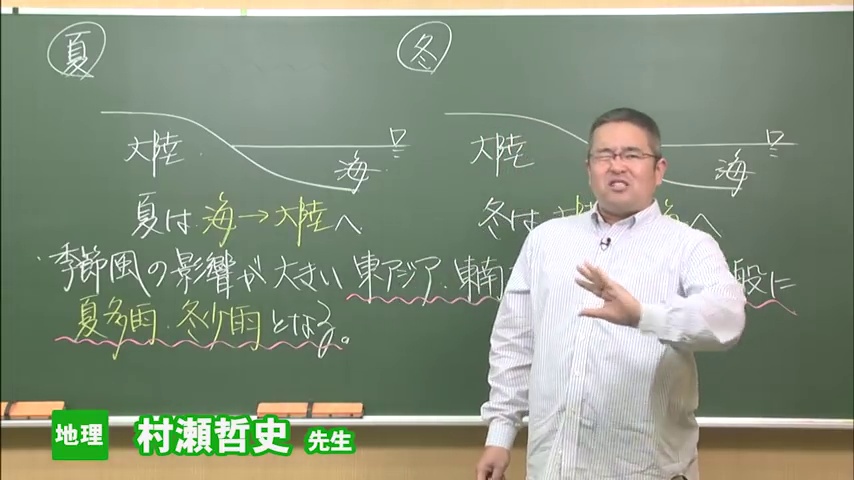 夏
冬
大陸
海
大陸
海
夏は 海→大陸へ
冬は へ
季節風の影響が大きい東アジア・東南 般に
夏多雨、冬少雨となる。
地理 村瀬哲史 先生